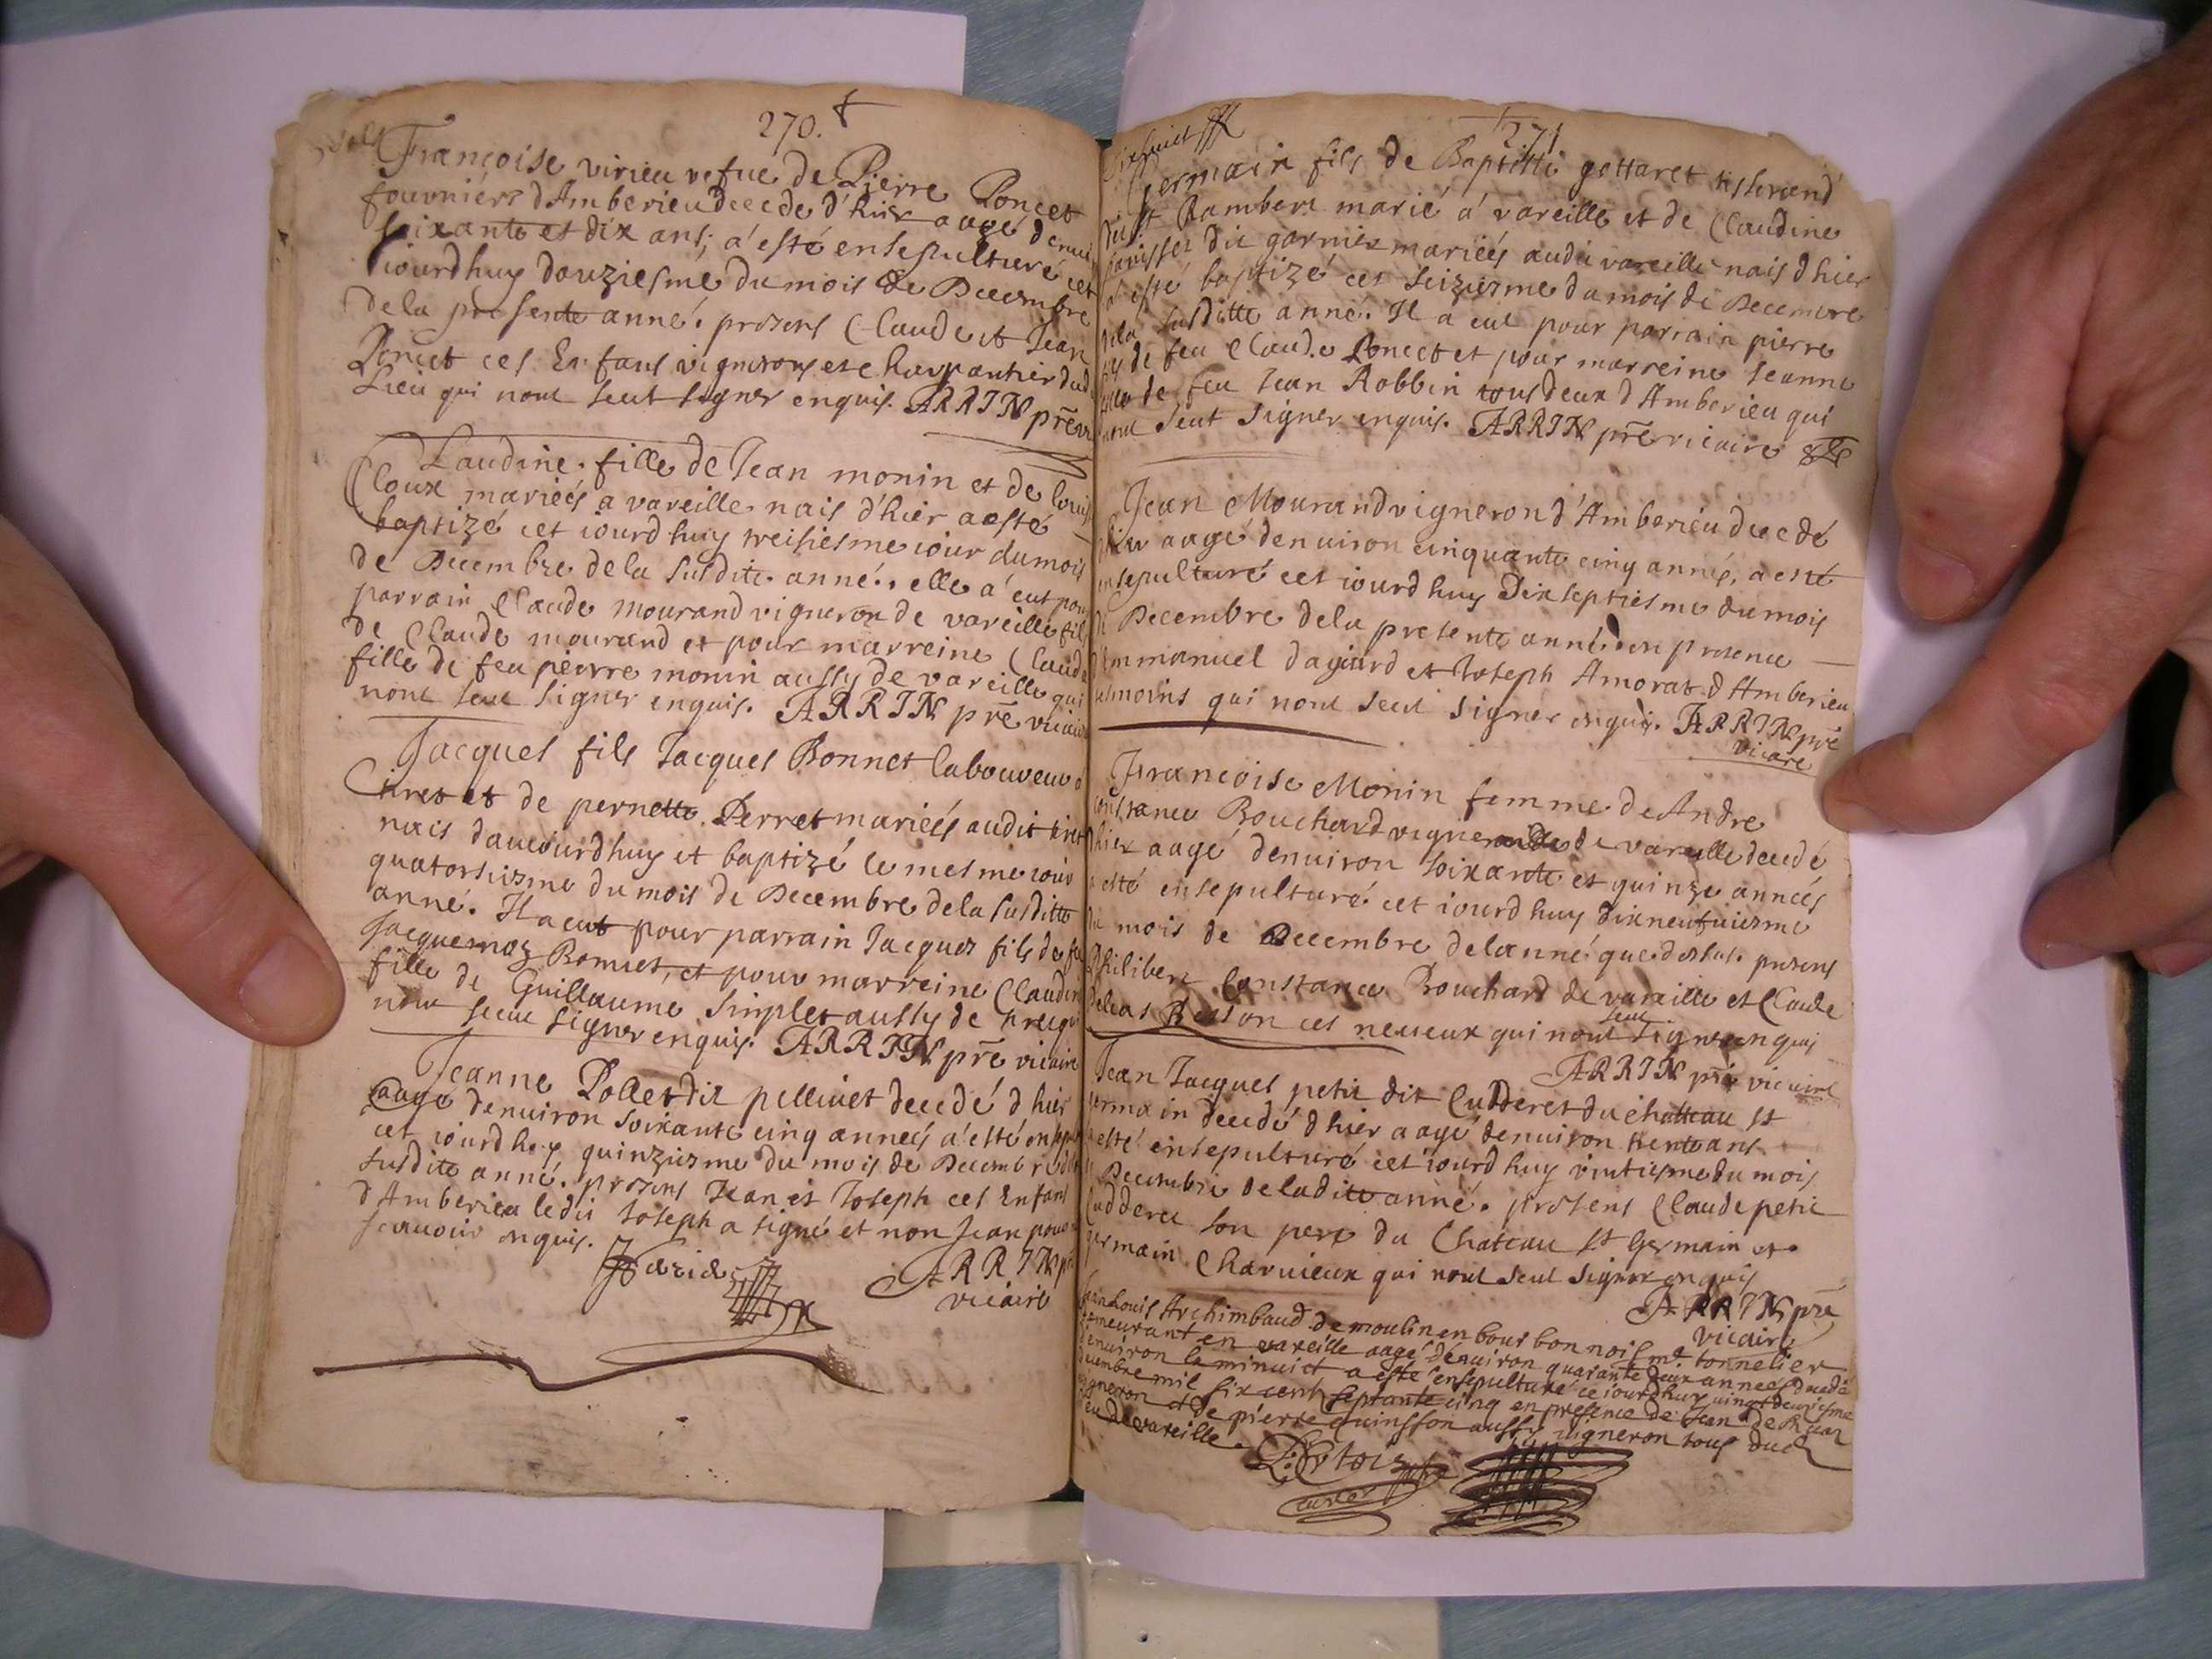 270.
Françoise virieu vefue de Pierre Poncet
fourniére d'Amberieu decede d'hier aagé denuir
soixante et dix ans, a' esté ensepulturé cet
iourdhuy douziesme du mois de Decembre
dela presente anné. presens Claude et Jean
Poncet ces Enfans vignerons et charpantier dud
Lieu qui nont seut signer enquis. ARRIN pre
Claudine fille de Jean monin et de louis
Cloux mariéés a vareille nais d'hier a esté
baptizé cet iourdhuy treisiesme iour du mois
de Decembre dela susdite anné. elle a' eut pour
parrain Claude mourand vigneron de vareille fil
de Claude mourand et pour marreine Claud
fille de feu pierre monin aussy de vareille qui
nont seut signer enquis. ARRIN pre vicaire
Jacques fils Jacques Bonnet laboureur d
tiret et de pernette Perret mariéés audit tiret
nais dauiourdhuy et baptizé le mesme iour
quatorsiesme du mois de Decembre dela susditte
anné. Il a eut pour parrain Jacques fils de feu
Bonnet, et pour marreine Claudin
fille de Guillaume Simplet aussy de tiret qui
nont seut signer enquis. ARRIN pre vicaire
Jeanne Pollet dit pellinet decedé d'hier
aagé denuiron soixante cinq anneés a' esté
cet iourdhuy quinziesme du mois de Decembre
susdite anné. presens Jean et Joseph ces Enfans
d'Amberieu ledit Joseph a signé et non Jean pour
scauoir enquis.
ARRIN pre
vicaire
271
Germain fils de Baptiste gottaret tisserand
de St Rambert marié a' vareille et de Claudine
dit garnier mariéés audit vareille nais d'hier
a esté baptizé cet seiziesme du mois de Decembre
dela susditte anné. Il a eut pour parrain pierre
fils de feu Claude Poncet et pour marreine Jeanne
fille de feu Jean Robbin tous deux d'Amberieu qui
nont seut signer enquis. ARRIN pre vicaire
Jean Mourand vigneron d'Amberieu decedé
d'hier aagé denuiron cinquante cinq années, a esté
ensepulturé cet iourdhuy Dixseptiesme du mois
de Decembre dela presente anné. en presence
d'Emmanuel dagaard et Joseph Amorat d'Amberieu
tesmoins qui nont seut signer enquis. ARRIN pre
vicaire
Françoise Monin femme de Andre
constance Bouchard vigneron de vareille decedé
d'hier aagé denuiron soixante et quinze anneés
a esté ensepulturé cet iourdhuy dixneufuiesme
du mois de Decembre delanné que dessus. presens
Philibert Constance Bouchard de vareille et Claude
ces neueux qui nont seut signer enquis
ARRIN pre vicaire
Jean Jacques petit dit Cudderet du chatteau St
germain decedé d'hier aagé denuiron trente ans
a esté ensepulturé cet iourdhuy vintiesme du mois
de Decembre de ladite anné. presens Claude petit
Cudderet son pere du Chateau St Germain et
germain Charuieux qui nont seut signer enquis
ARRIN pre
vicaire
Jean Louis Archimbaud de moulin en bourbonnois me. tonnelier
demeurant en vareille aagé denuiron quarante deux annees decedé
enuiron la minuict a esté ensepulturé ce iourdhuy uingt deuxiesme
decembre mil six cents septante cinq en presence de Jean de
vigneron et de pierre quinsson aussy vigneron tous dud
lieu de vareille.